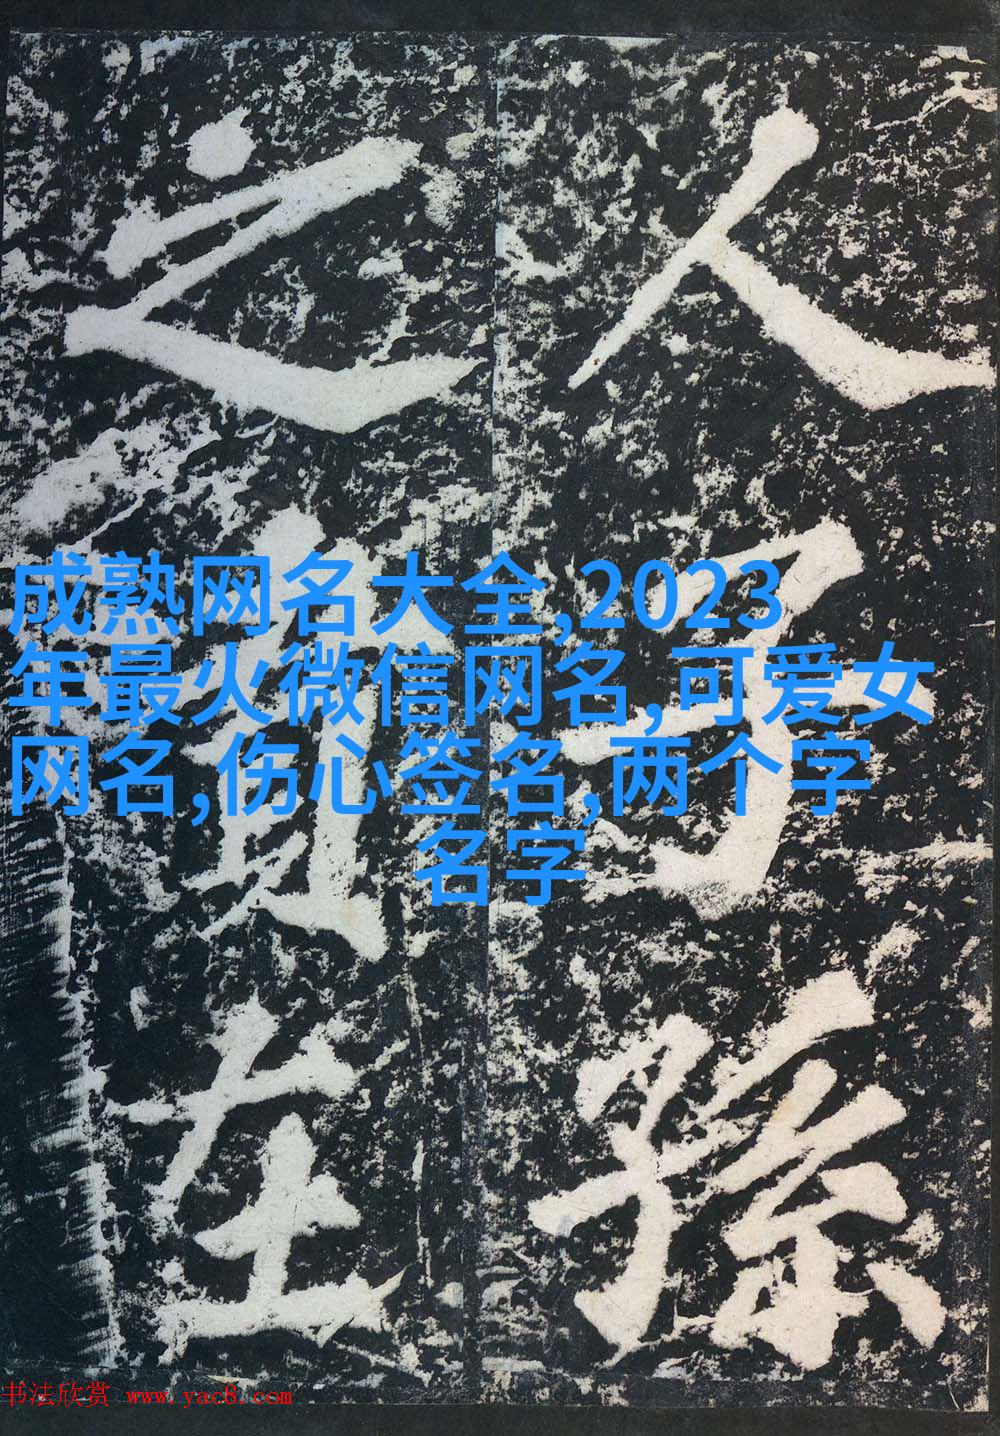 人子孫
之在
成熟网名大全,2023
年最火微信网名,可爱女
网名,伤心签名,两个字
名字
书法欣赏 www.yac8.com